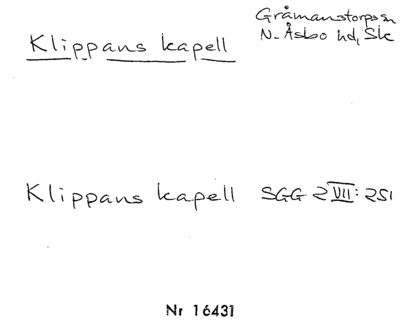 Klippans kapell
Gråmanstorps sn
N. Åsbo hd, Sk
Klippans kapell SGG 2 VII: 251
Nr 16431